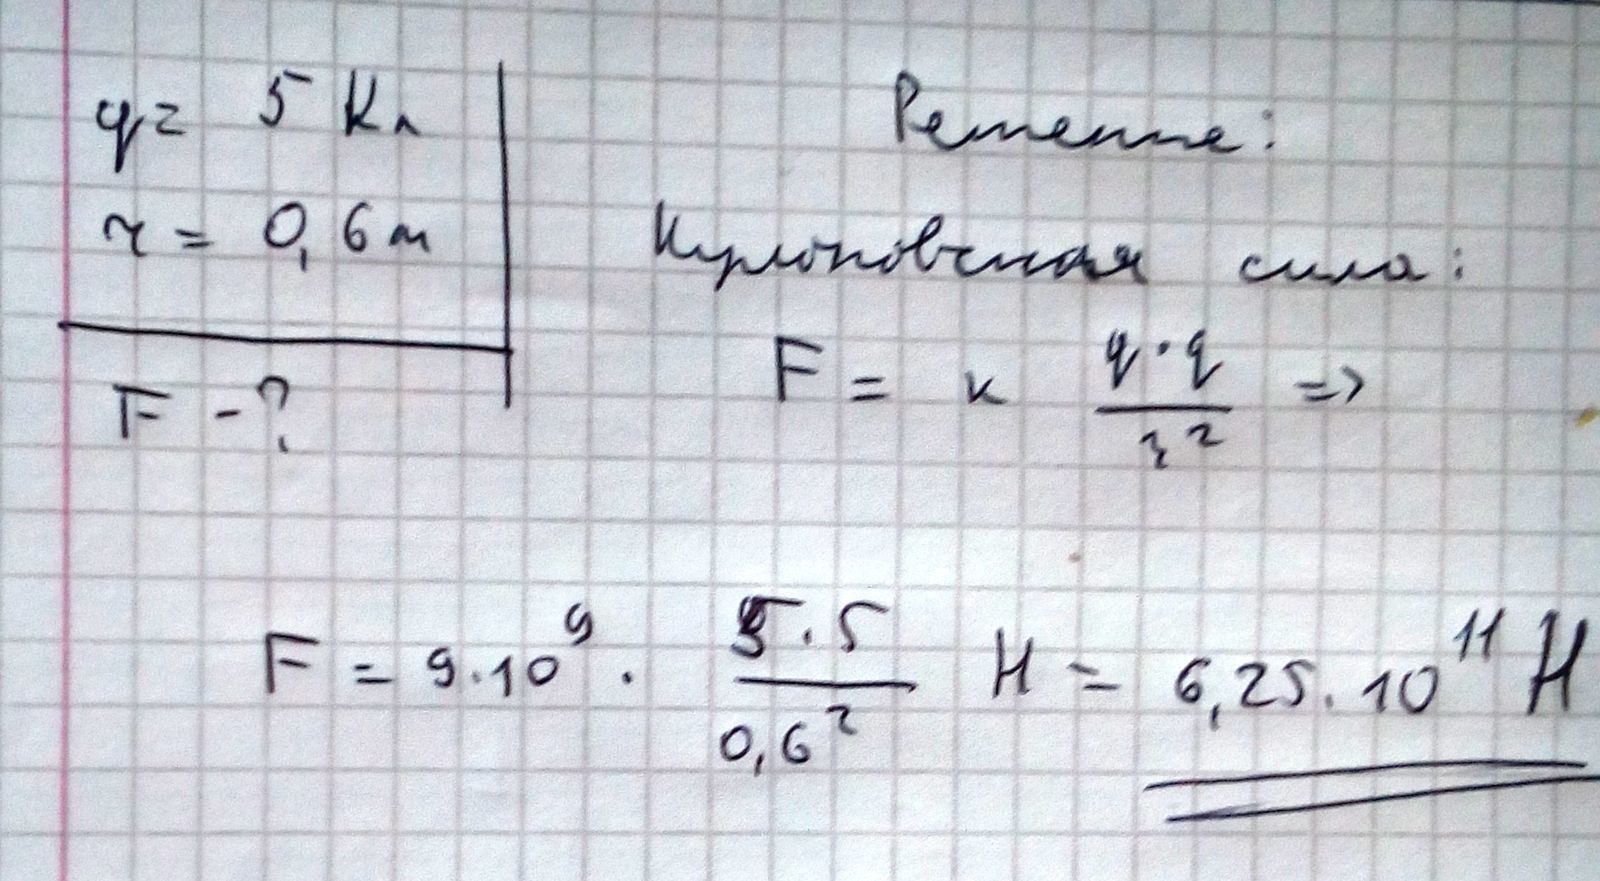 q = 5 Кл
r = 0,6 м
F - ?
Решение:
Кулоновская сила:
F = к q·q / r² =>
F = 9·10⁹ · 5·5 / 0,6² Н = 6,25·10¹¹ Н